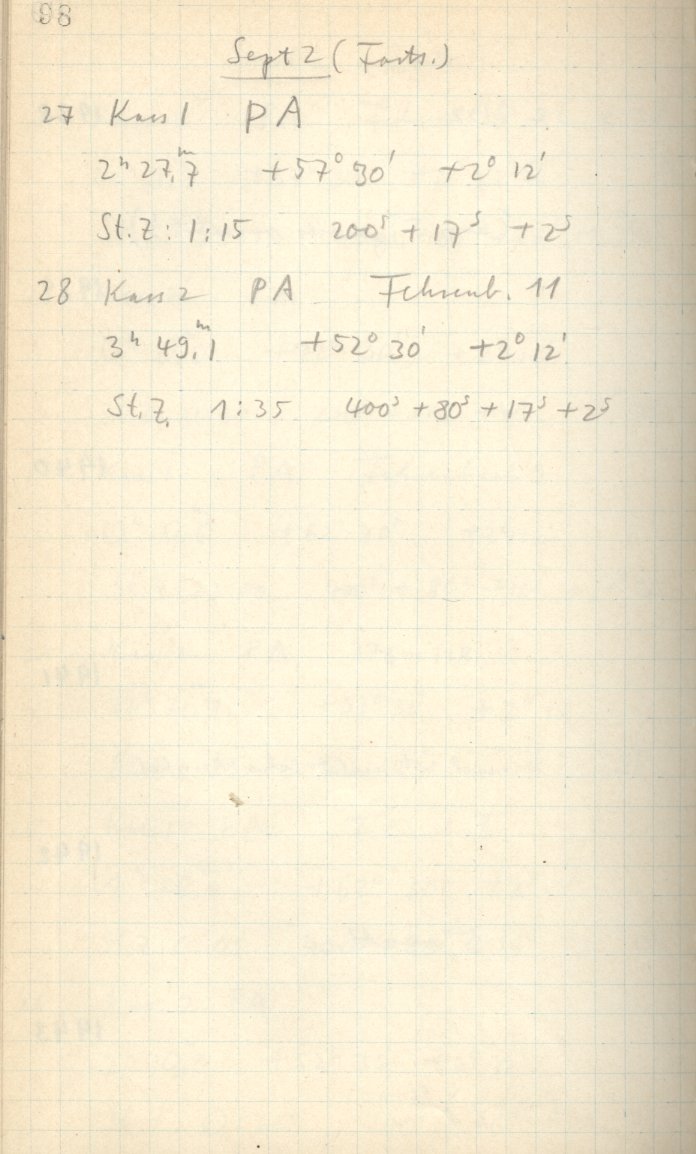 98
Sept 2 (Forts.)
27 Kass 1 PA
2ʰ 27,ᵐ7 +57° 30' +2° 12'
St.Z: 1:15 200ˢ + 17ˢ +2ˢ
28 Kass 2 PA Fehrenb. 11
3ʰ 49,ᵐ1 +52° 30' +2° 12'
St.Z. 1:35 400ˢ +80ˢ +17ˢ +2ˢ